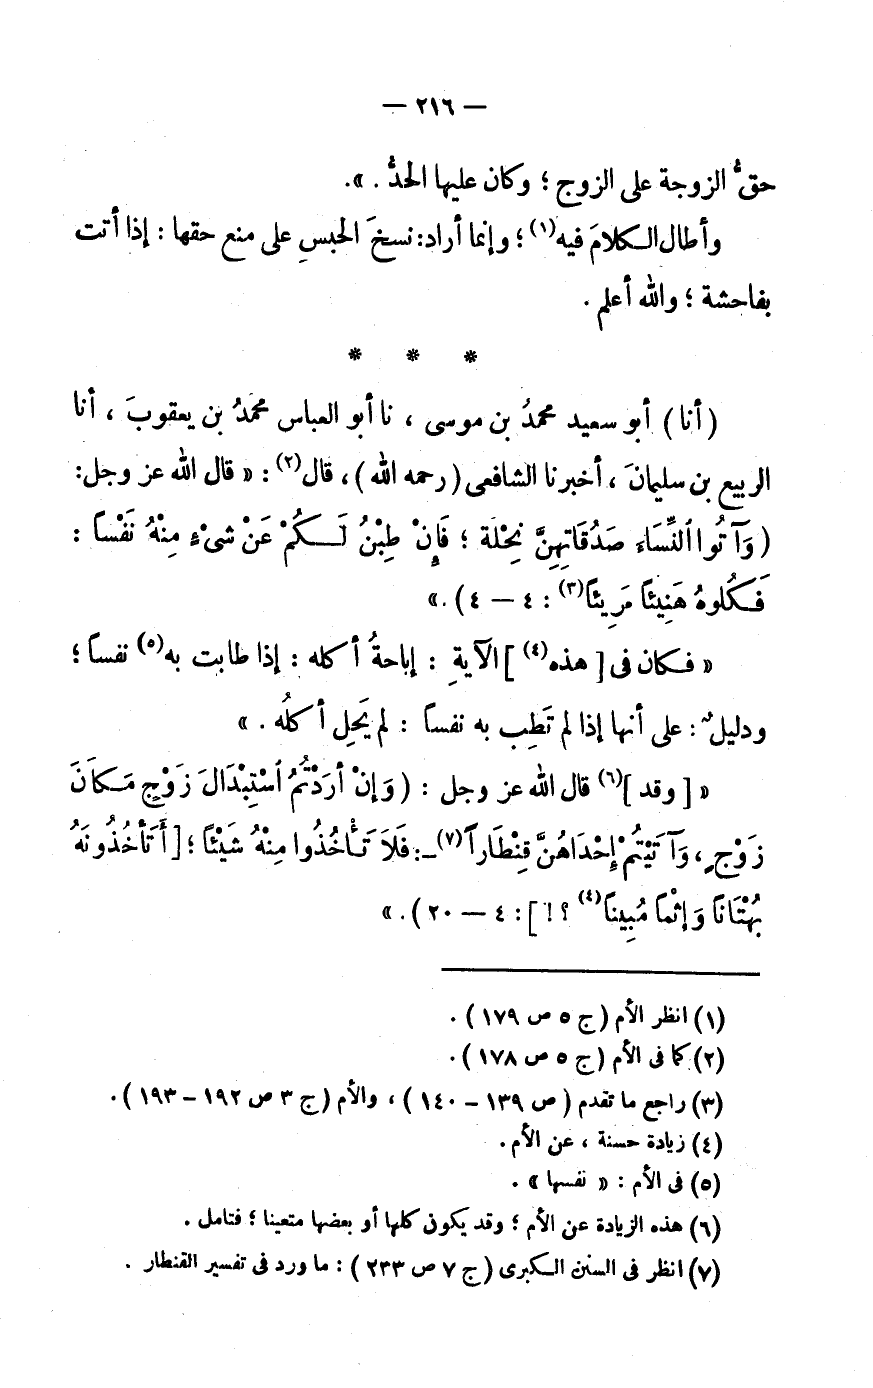 — ٢١٦ —
حقُّ الزوجة على الزوج ؛ وكان عليها الحدُّ . ».
وأطال الكلامَ فيه(١) ؛ وإنما أراد: نسخَ الحبسِ على منع حقها : إذا أتت
بفاحشة ؛ والله أعلم .
* * *
(أنا) أبو سعيد محمدُ بن موسى ، نا أبو العباس محمدُ بن يعقوبَ ، أنا
الربيع بن سليمانَ ، أخبرنا الشافعى (رحمه الله) ، قال(٢) : « قال الله عز وجل:
(وَآتُوا ٱلنِّسَاءَ صَدُقَاتِهِنَّ نِحْلَةً ؛ فَإِنْ طِبْنُ لَكُمْ عَنْ شَىْءٍ مِنْهُ نَفْساً :
فَكُلُوهُ هَنِيئاً مَرِيئاً(٣) : ٤ – ٤) .»
« فكان فى [ هذه(٤) ] الآيةِ : إباحةُ أكله : إذا طابت به(٥) نفساً ؛
ودليلٌ : على أنها إذا لم تَطِب به نفساً : لم يَحِل أكلُه . »
« [ وقد ](٦) قال الله عز وجل : (وَإِنْ أَرَدْتُمُ ٱسْتِبْدَالَ زَوْجٍ مَكَانَ
زَوْجٍ ، وَآتَيْتُمْ إِحْدَاهُنَّ قِنْطَاراً(٧) ــ : فَلاَ تَأْخُذُوا مِنْهُ شَيْئاً ؛ [ أَتَأْخُذُونَهُ
بُهْتَاناً وَإِثْماً مُبِيناً(٤) ؟ ! ] : ٤ – ٢٠) .»
(١) انظر الأم (ج ٥ ص ١٧٩) .
(٢) كما فى الأم (ج ٥ ص ١٧٨) .
(٣) راجع ما تقدم (ص ١٣٩ – ١٤٠) ، والأم (ج ٣ ص ١٩٢ – ١٩٣) .
(٤) زيادة حسنة ، عن الأم .
(٥) فى الأم : « نفسها » .
(٦) هذه الزيادة عن الأم ؛ وقد يكون كلها أو بعضها متعينا ؛ فتامل .
(٧) انظر فى السنن الكبرى (ج ٧ ص ٢٣٣) : ما ورد فى تفسير القنطار .